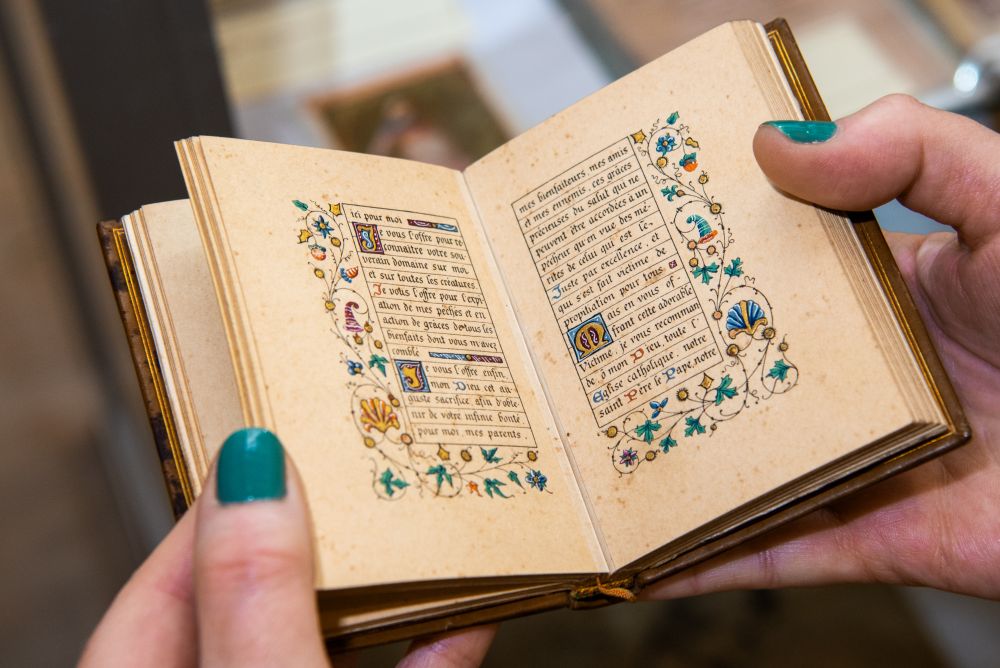 ici pour moi
Je vous l'offre pour re
connaitre votre sou
verain domaine sur moi
et sur toutes les créatures.
Je vous l'offre pour l'expi
ation de mes péchés et en
action de grâces de tous les
bienfaits dont vous m'avez
comblé
Je vous l'offre enfin,
mon Dieu, cet au-
guste sacrifice, afin d'obte
nir de votre infinie bonté
pour moi, mes parents,
mes bienfaiteurs, mes amis
et mes ennemis, ces grâces
précieuses du salut qui ne
peuvent être accordées a un
pécheur qu'en vue des mé-
rites de celui qui est le
Juste par excellence, et
qui s'est fait victime de
propitiation pour tous.
Mais en vous of
frant cette adorable
Victime, je vous recomman
de, ô mon Dieu, toute l'
Eglise catholique, notre
saint Père le Pape, notre